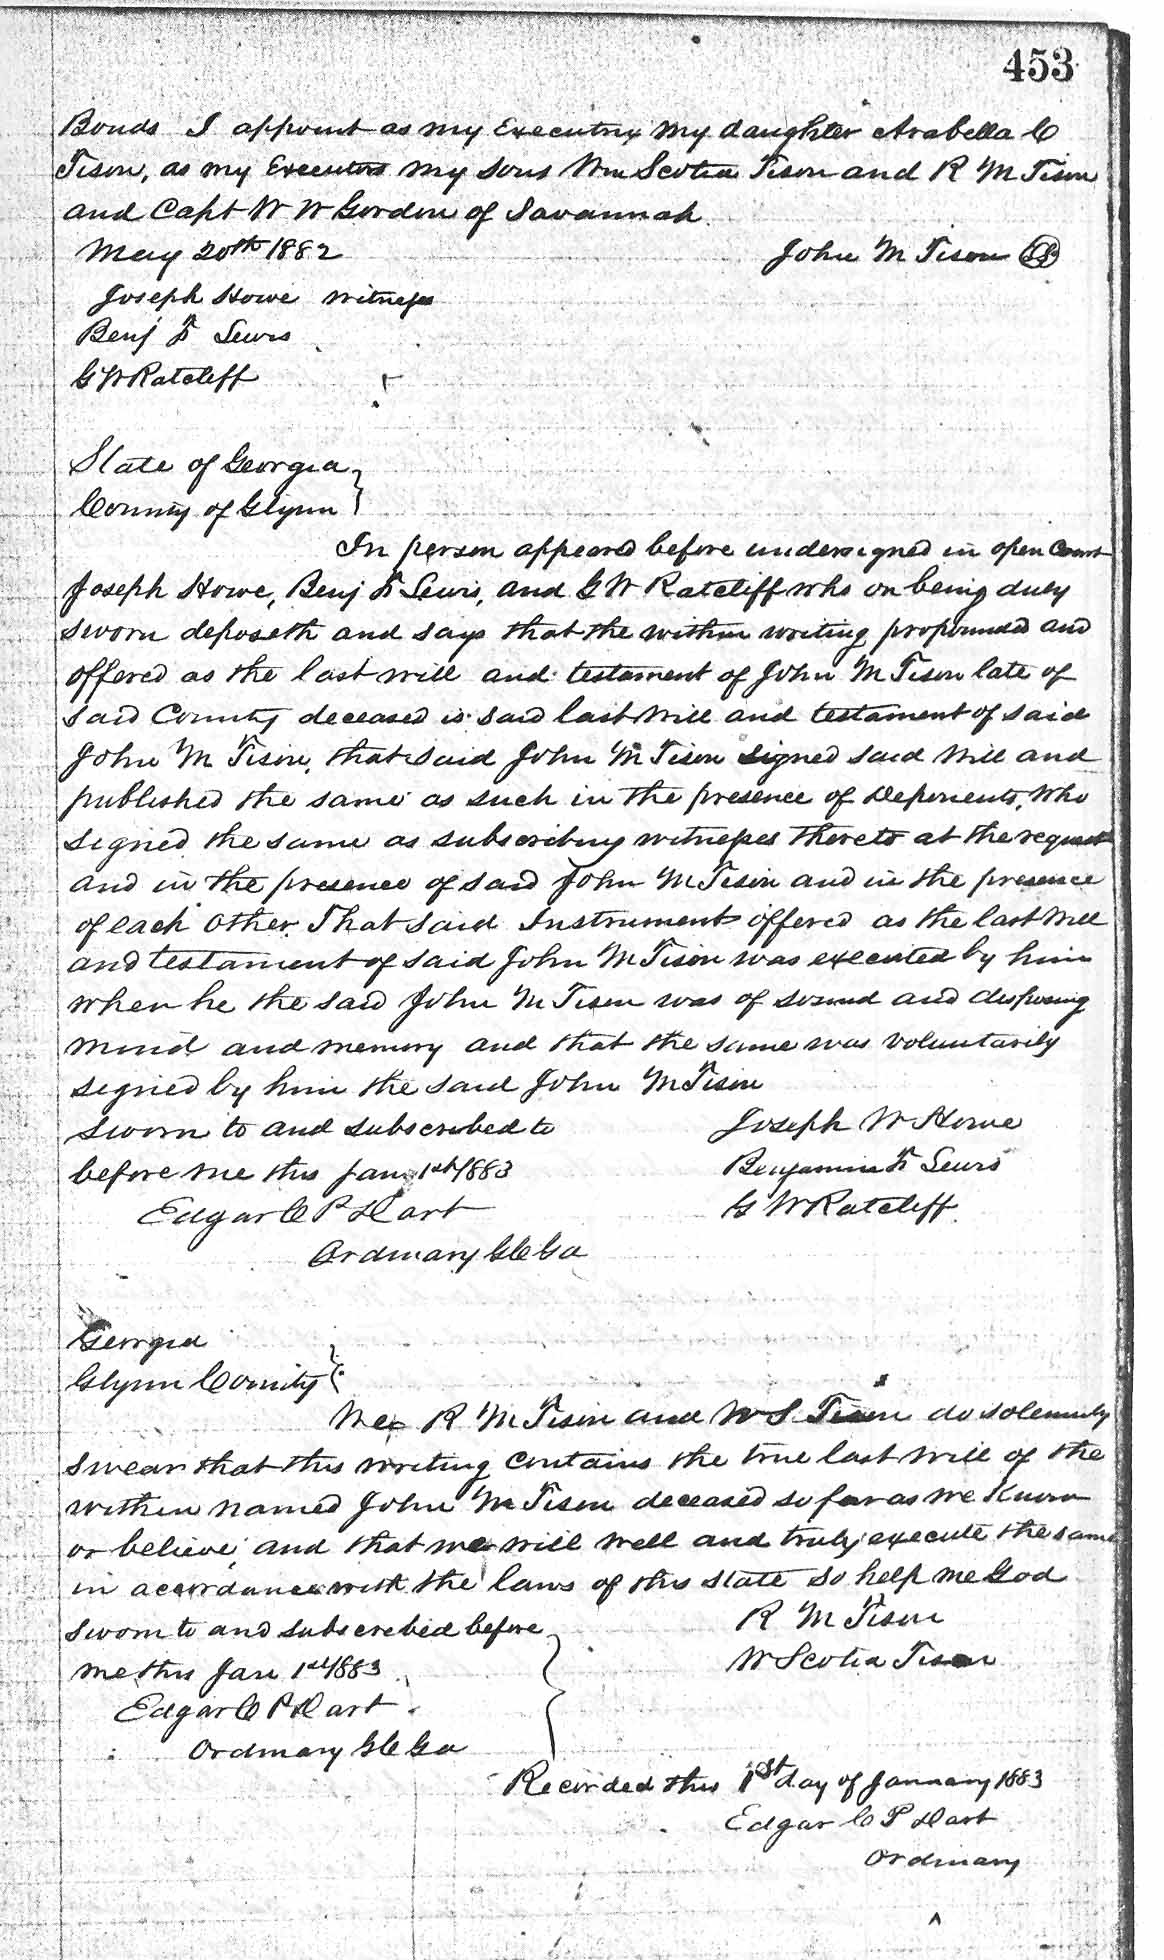 453
Bonds I appoint as my Executrix my daughter Arabella C
Tison, as my Executors my sons Wm Scotia Tison and R M Tison
and Capt W W Gordon of Savannah
May 20th 1882 John M Tison LS
Joseph Howe witness
Benj F Lewis
G W Ratcliff
State of Georgia
County of Glynn
In person appeared before undersigned in open Court
Joseph Howe, Benj F Lewis, and G W Ratcliff who on being duly
sworn deposeth and says that the within writing propounded and
offered as the last will and testament of John M Tison late of
said County deceased is said last will and testament of said
John M Tison, that said John M Tison signed said will and
published the same as such in the presence of Deponents, who
signed the same as subscribing witnesses thereto at the request
and in the presence of said John M Tison and in the presence
of each other. That said Instrument offered as the last will
and testament of said John M Tison was executed by him
when he the said John M Tison was of sound and disposing
mind and memory and that the same was voluntarily
signed by him the said John M Tison
Sworn to and subscribed to Joseph W Howe
before me this Jany 1st 1883 Benjamin F Lewis
Edgar C P Dart G W Ratcliff
Ordinary G C Ga
Georgia
Glynn County
We R M Tison and W S Tison do solemnly
swear that this writing contains the true last will of the
within named John M Tison deceased so far as we Know
or believe, and that we will well and truly execute the same
in accordance with the laws of this state so help me God
Sworn to and subscribed before R M Tison
me this Jan 1st 1883 W Scotia Tison
Edgar C P Dart
Ordinary G C Ga
Recorded this 1st day of January 1883
Edgar C P Dart
Ordinary